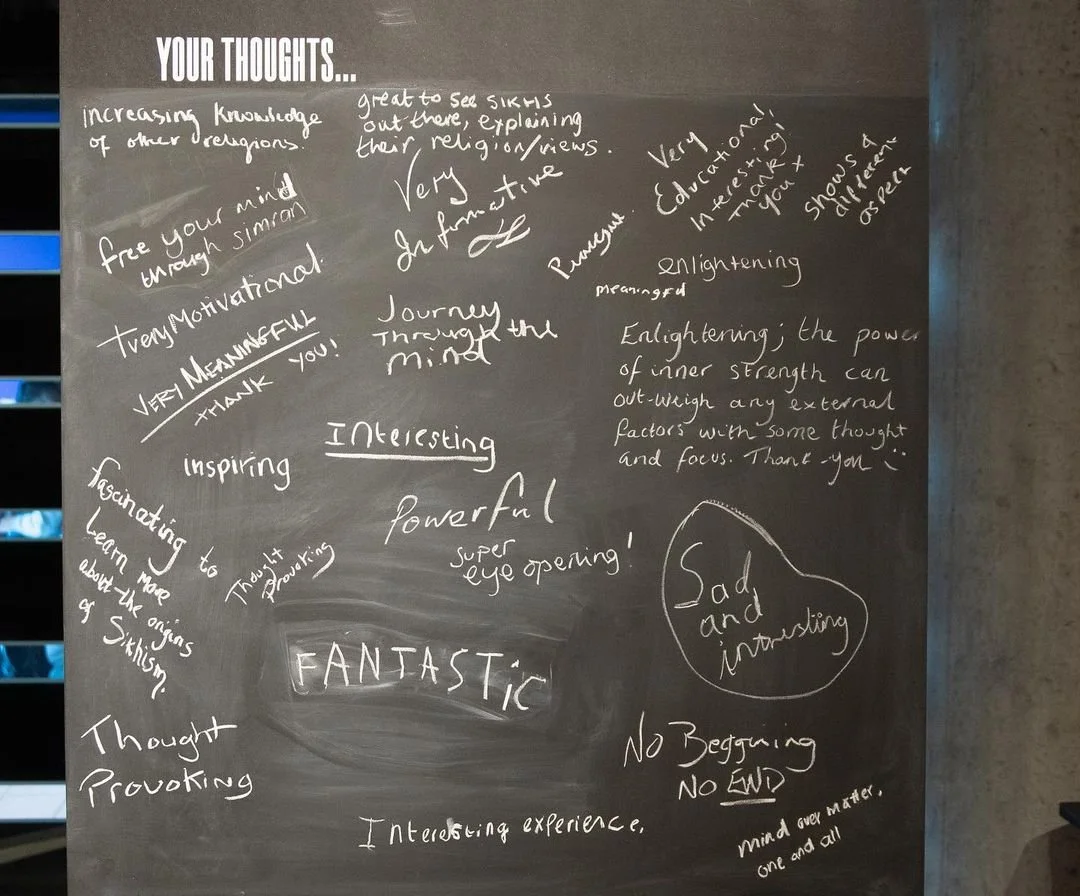 YOUR THOUGHTS...
increasing knowledge
of other religions.
great to see SIKHS
out there, explaining
their religion/views.
Very
Educational,
Interesting!
Thank
you x
Shows a
different
aspect
free your mind
through simran
Very
Informative
enlightening
meaningful
Very Motivational
VERY MEANINGFUL
THANK YOU!
Journey
Through the
mind
Enlightening; the power
of inner strength can
out-weigh any external
factors with some thought
and focus. Thank-you
Interesting
inspiring
Powerful
super
eye opening!
fascinating to
Learn more
about the origins
of Sikhism.
Thought
Provoking
Sad
and
intresting
FANTASTiC
Thought
Provoking
No Beggning
NO END
Interesting experience.
mind over matter.
one and all